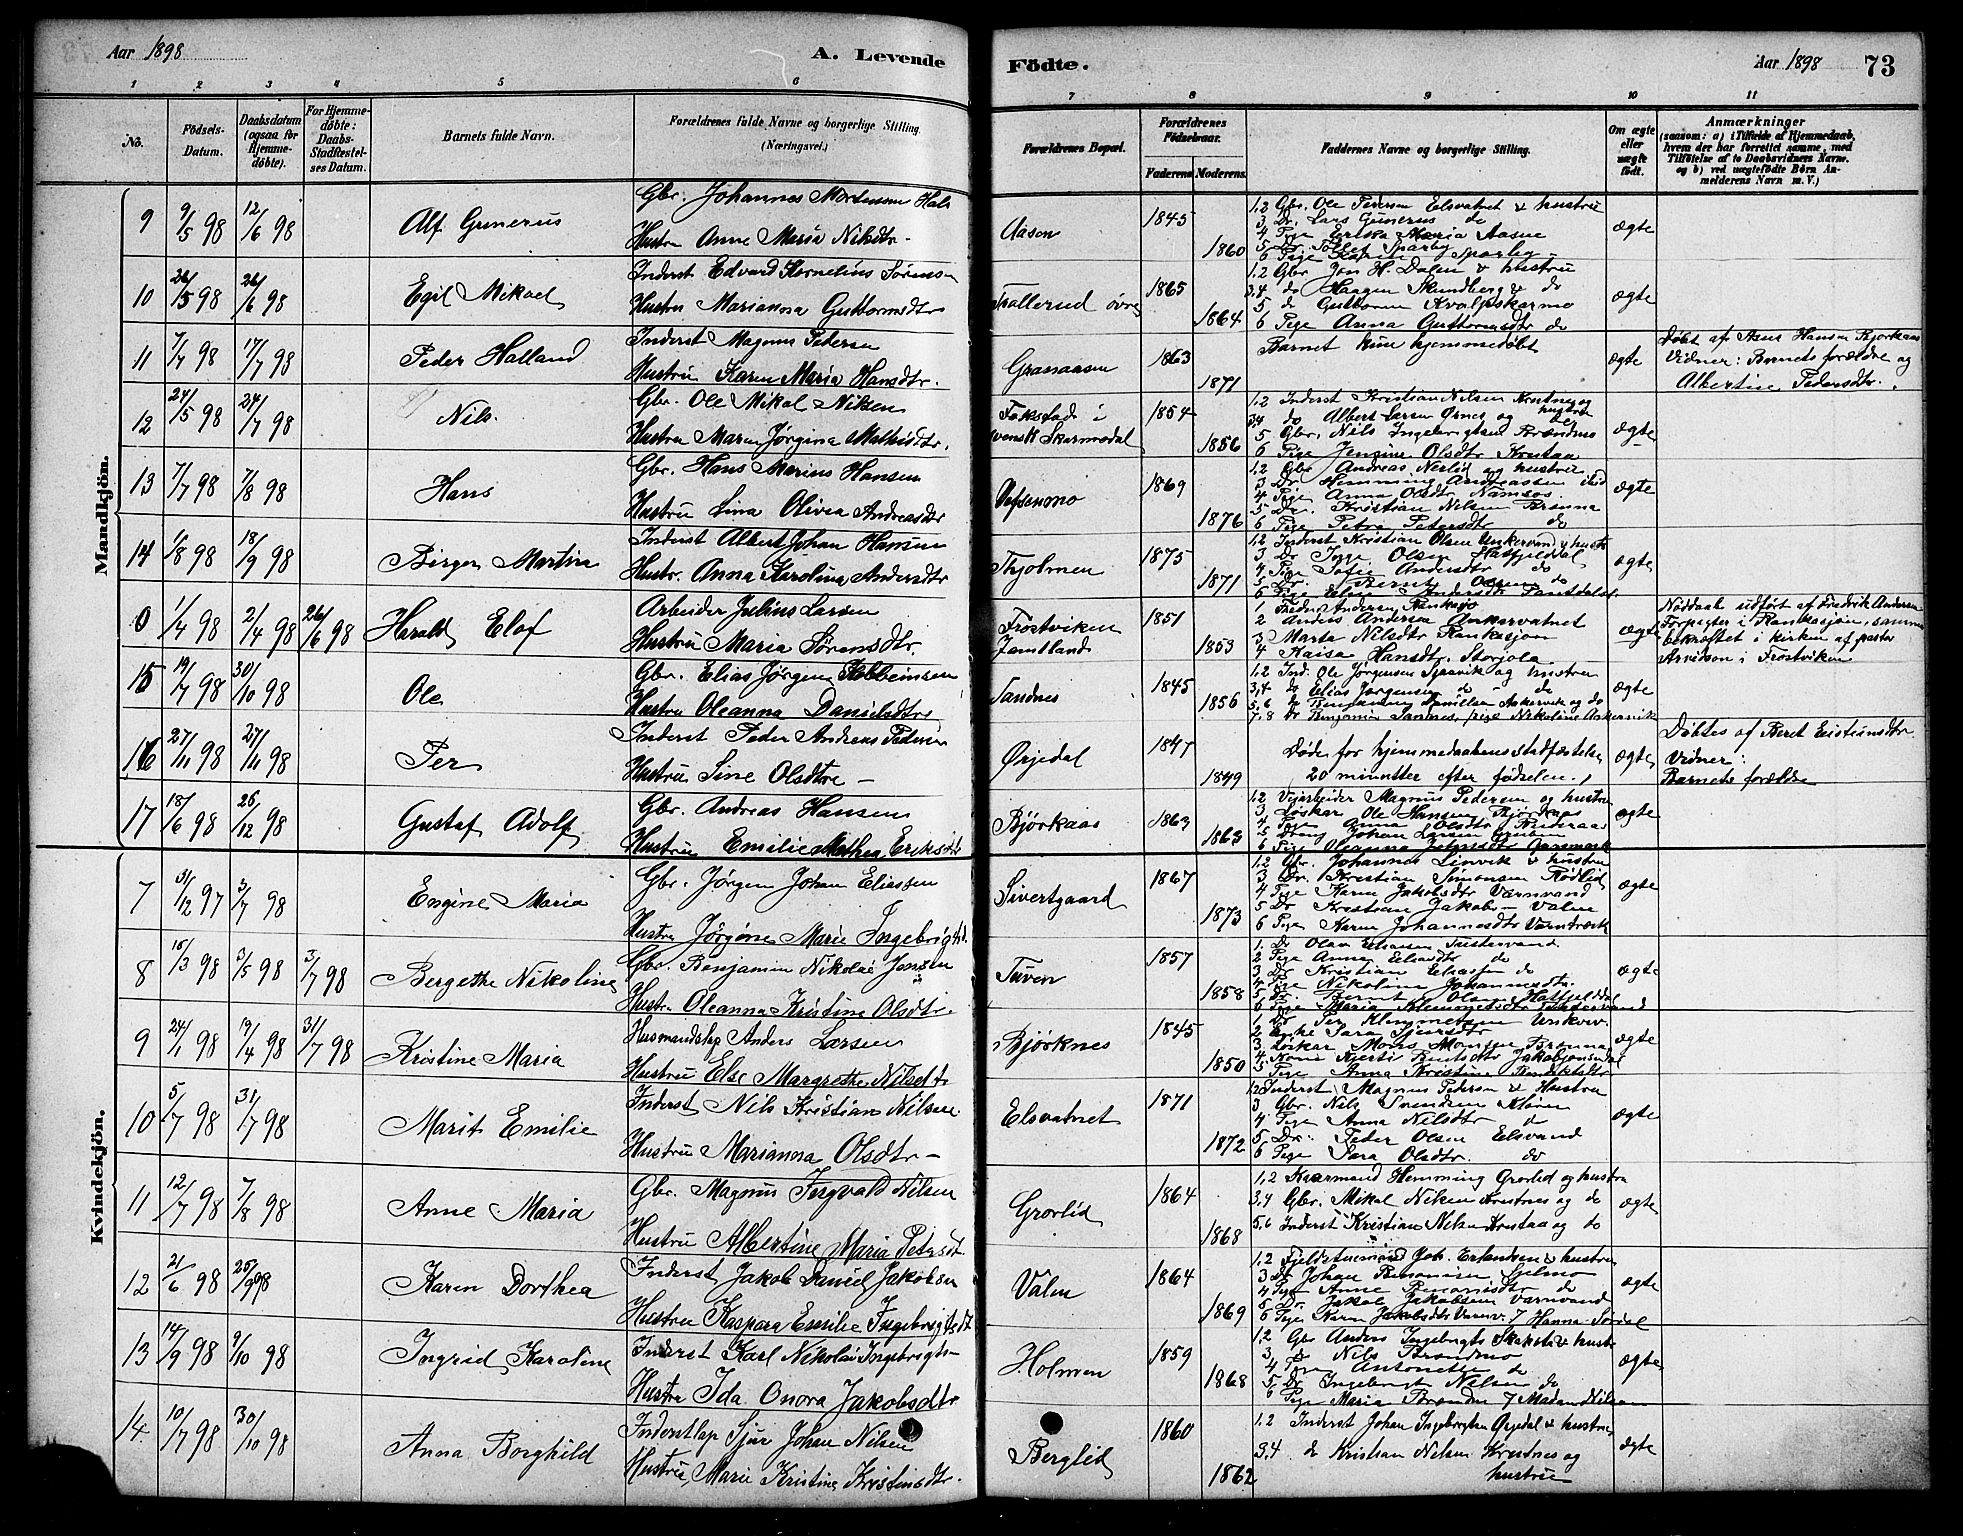 Aar 1898
A. Levende
Födte.
Aar 1898
73
1 2 3 4 5 6 7 8 9 10 11
No.
Födsels-
Datum.
Daabsdatum
(ogsaa for
Hjemme-
døbte).
For Hjemme-
døbte:
Daabs-
Stadfæstel-
ses Datum.
Barnets fulde Navn.
Forældrenes fulde Navne og borgerlige Stilling.
(Næringsvei.)
Forældrenes Bopæl.
Forældrenes
Födselsaar.
Faderens Moderens.
Faddernes Navne og borgerlige Stilling.
Om ægte
eller
uægte
født.
Anmærkninger
(saasom: a) i Tilfælde af Hjemmedaab,
hvem der har forrettet samme, med
Tilföielse af to Daabsvidners Navne.
og b) ved uægtefødte Börn An-
melderens Navn m. V.)
Mandkjön.
9 9/5 98 12/6 98 Alf Gunerus
Gbr. Johannes Mortensen Hals
Hustru Anne Maria Nilsdtr.
Aasen 1845 1860
1,2 Gbr. Ole Pedersen Elsvatnet & hustru
3 Dr. Lars Gunerus do
4 Pige Maria Aasne
5 Dr. Tollef Sparby
6 Pige Karen Sparby
ægte
10 26/5 98 26/6 98 Egil Mikael
Inderst Edvard Kornelius Sørensen
Hustru Marianna Guttormsdtr
Trollerud øvre 1865 1864
1,2 Gbr Jon H. Dalen & hustru
3,4 do Haagen Skundberg & do
5 do Guttorm Kvalpskarmo
6 Pige Anna Guttormsdtr do
ægte
11 7/7 98 17/7 98 Peder Halland
Inderst Magnus Pedersen
Hustru Karen Maria Hansdtr.
Granaasen 1863 1871
Barnet kun hjemmedøbt
ægte
Døbt af Hansen Bjorkaas
Vidner: Barnets forældre og
Albertine Pedersdtr.
12 24/5 98 24/7 98 Nils
Gbr. Ole Mikal Nilsen
Hustru Maren Jørgina Mathisdtr.
i
svensk Skarmodal 1854 1856
1,2 Inderst Kristian Nilsen Krutnes og hustru
3,4 do Albert Larsen Ørnes og do
5 Gbr. Nils Ingebrigtsen Brændmo
6 Pige Jensine Olsdtr Krutaa
ægte
13 7/7 98 7/8 98 Hans
Gbr. Hans Marius Hansen
Hustru Lina Olivia Andreasdtr
Vefsenmo 1869 1876
1,2 Gbr Andreas Nerlid og hustru
3 Dr Hemming Andreassen ibid
4 Pige Anna Olsdtr Namsos.
5 Dr. Kristian Nilsen Brønna
6 Pige Petra Petersdtr do
ægte
14 1/8 98 18/9 98 Birger Martin
Inderst Albert Johan Hansen
Hustr. Anna Karolina Andersdtr
Tholmen 1875 1871
1,2 Inderst Kristian Olsen Unkervand & hustr
3 Dr Inge Olsen Hatfjelddal
4 Pige Sofie Andersdtr do
5 Dr. Bernt Olsen do
6 Pige Elise Andersdtr
ægte
0 1/4 98 2/4 98 26/6 98 Harald Elof
Arbeider Julius Larsen
Hustru Maria Sørensdtr.
Frostviken
Jemtland 1851 1853
1 Fredr. Andersen Rankesjø
2 Anders Andersen Ankarvatnet
3 Marta Nilsdtr Rankasjøn
4 Kaisa Hansdtr. Storjola
ægte
Nøddaab udført af Fredrik Andersen
Forpagter i Rankasjøn, samme
bekræftet i kirken af pastor
Arvidson i Frostviken
15 19/7 98 30/10 98 Ole
Gbr. Elias Jørgen Kobbeinsen
Hustru Oleanna Danielsdtr
Sandnes 1845 1856
1,2 Ind. Ole Jørgensen og hustru
3,4 do Elias Jørgensen do do
5,6 do Benjamin Danielsen Ankervik og do
7,8 Dr Benjamin Sannes, pige Nikoline Ankervik
ægte
16 27/11 98 27/11 98 Per
Inderst Peder Andreas Pedersen
Hustru Sine Olsdtr
Ørjedal 1847 1849
Døde før hjemmedaabens stadfæstelse
20 minutter efter fødselen.
ægte
Døbtes af Beret Eistensdtr
Vidner:
Barnets forældre
17 18/6 98 26/12 98 Gustaf Adolf
Gbr. Andreas Hansen
Hustru Emilie Mathea Eriksdtr
Bjørkaas 1863 1863
1,2 Veiarbeider Magnus Pedersen og hustru
3 Løskar Ole Hansen Bjørkaas
4 Pige Anna Olsdtr
5 Dreng Johan Larsen
6 Pige Oleanna Jensdtr
ægte
Kvindekjön.
7 31/12 97 3/7 98 Engine Maria
Gbr. Jørgen Johan Eliassen
Hustru Jørgine Marie Ingebrigtsd.
Sivertgaard 1867 1873
1,2 Gbr. Johannes Linvik & hustru
3 Dr. Kristian Simonsen Rødlid
4 Pige Karen Jakobsdtr Værnvand
5 Dr Kristian Jakobs- Valen
6 Pige Karen Johannesdtr
ægte
8 15/3 98 3/5 98 3/7 98 Bergethe Nikoline
Gbr. Benjamin Nikolai Jensen
Hustr. Oleanna Kristine Olsdtr.
Tuven 1857 1858
1. Dr Olav Eliassen
2 Pige Anna Eliasdtr do
3 Dr Kristian Eliassen do
4 Pige Nikoline Johannesdtr.
5 Dr. Bernt Olsen Hatfjelddal
6 Pige Maria Klemmetsdtr
ægte
9 24/1 98 19/4 98 31/7 98 Kristine Maria
Husmandslap Anders Larsen
Hustru Else Margrethe Nilsdtr
Bjørknes 1845 1850
1. Dr Per Klemmetsen Unkerv.
2 Enke Sara Sjursdtr
3 Løskar Mons Monsen Brønna
4 Kone Kjersti Bentsdtr
5 Pige Anna Kristine
ægte
10 5/7 98 31/7 98 Marit Emilie
Inderst Nils Kristian Nilsen
Hustru Marianna Olsdtr
Elsvatnet 1871 1872
1,2 Inderst Magnus Pedersen & Hustru
3 Gbr. Nils Svendsen
4 Pige Anna Nilsdtr do
5 Dr. Peder Olsen Elsvand
6 Pige Sara Olsdtr. do
ægte
11 12/7 98 7/8 98 Anne Maria
Gbr. Magnus Ingvald Nilsen
Hustru Albertine Maria Petersdt.
Grorlid 1864 1868
1,2 Kværmand Hemming Grorlid og hustru
3,4 Gbr. Mikal Nilsen Krutnes og do
5,6 Inderst Kristian Nilsen Krutaa og do
ægte
12 21/6 98 25/9 98 Karen Dorthea
Inderst Jakob Daniel Jakobsen
Hustru Kaspara Emilie Ingebrigtsdt
Valen 1864 1869
1,2 Fjeldstuemand Joh. Erlandsen & hustru
3 Dr Johan
4 Pige Anne do
5 Dr. Jakob Jakobsen Varnvand
6 Pige Karen Jakobsdtr Varnv. 7 Hanna Sørdal
ægte
13 14/9 98 9/10 98 Ingrid Karoline
Inderst Karl Nikolai Ingebrigts-
Hustru Ida Onora Jakobsdtr
Holmen 1859 1868
1,2 Gbr Anders Ingebrigts & hustr
3, Dr Nils Brændmo
4 Pige Antonette do
5 Dr Ingebrigt Nilsen do
6 Pige Maria Brændmo 7 Madam
ægte
14. 10/7 98 30/10 98 Anna Borghild
Inderstlap Sjur Johan Nilsen
Hustru Marie Kristine Kristinsdtr.
Berglid 1860 1862
1,2 Inderst Johan Ingebrigtsn Ørjedal & hustru
3,4 do Kristian Nilsen Krutnes og
hustru
ægte